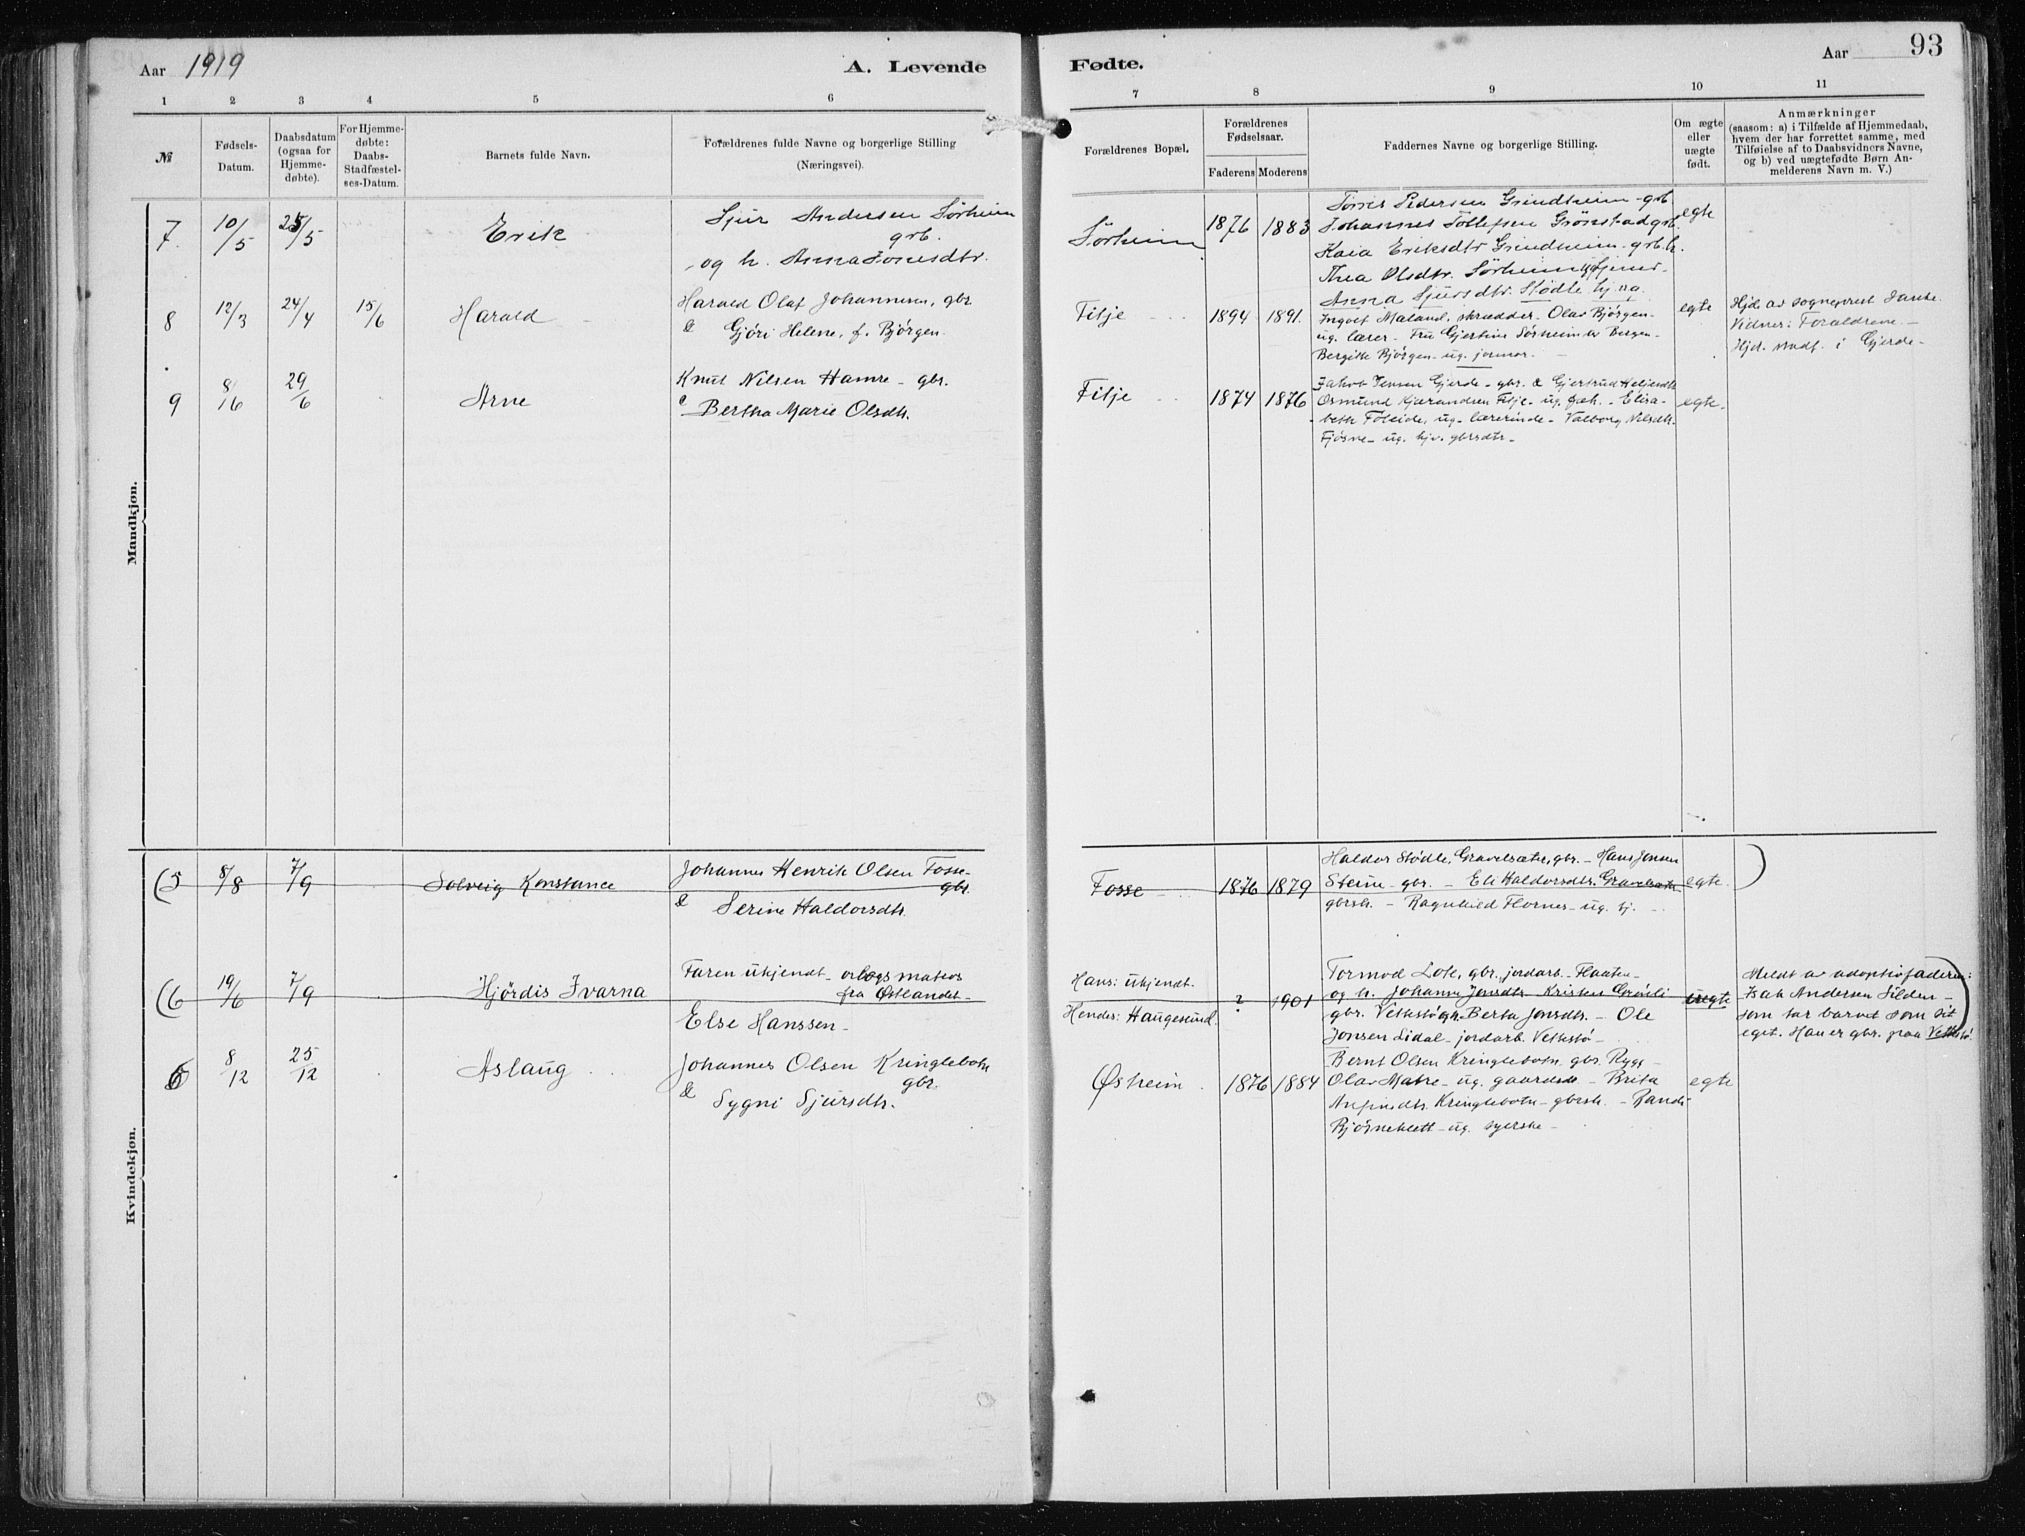 Aar 1919
A. Levende
Fødte.
Aar
93
1 2 3 4 5 6 7 8 9 10 11
№
Fødsels-
Datum.
Daabsdatum
(ogsaa for
Hjemme-
døbte).
For Hjemme-
døbte:
Daabs-
Stadfæstel-
ses-Datum.
Barnets fulde Navn.
Forældrenes fulde Navne og borgerlige Stilling
(Næringsvei).
Forældrenes Bopæl.
Forældrenes
Fødselsaar.
Faderens Moderens
Faddernes Navne og borgerlige Stilling.
Om ægte
eller
uægte
født.
Anmærkninger
(saasom: a) i Tilfælde af Hjemmedaab,
hvem der har forrettet samme, med
Tilføielse af to Daabsvidners Navne,
og b) ved uægtefødte Børn An-
melderens Navn m. V.)
Mandkjøn.
7. 10/5 25/5 Erik
Sjur Andersen Sörheim
grb.
og h. Anna Jonesdtr.
Sörheim 1876 1883
Pedersen Grindheim grb.
Johannes Tollefsen Grönstad grb.
Kaia Eriksdtr Grindheim grb.h.
Thea Olsdtr. Sörheim
Anna Sjursdtr. Stödle hj. ug.
egte
8 12/3 24/4 15/6 Harald
Harald Olaf Johannesen, gbr.
& Gjöri Helene, f. Bjørgen.
Fitje 1894 1891.
Ingolf Maland, skrædder - Olav Bjørgen-
ug. lærer - Fru Gjertine Sørheim av Bergen-
Bergitte Bjørgen- ug. jormor.
egte
Hjd. av sogneprest
Vidner: Foraldrene. -
Hjd. stadf. i Gjerde-
9 8/6 29/6 Arne
Knut Nilsen Hamre - gbr.
& Bertha Marie Olsdtr.
Fitje 1874 1876
Jakob Jensen Gjerde - gbr. & Gjertrud
Osmund Kjærandsen Fitje - ug. - Elisa-
beth Föleide, ug. lærerinde - Valborg Nilsdtr.
Fjösne - ug. hjv. gbrsdtr-
egte.
Kvindekjøn.
(5 8/8 7/9 Solveig Konstance
Johannes Henrik Olsen Fosse-
gbr.
& Serine Haldorsdtr.
Fosse 1876 1879
Haldor Stödle, Gravelsæter, gbr. - Hans Jensen
Steine - gbr. - Eli Haldorsdtr. Gravelsæter
gbrsh. - Ragnhild Flornes - ug. hj.
egte. )
(6 19/6 7/9 Hjördis Ivarna
Faren ukjendt - orlogsmatros
fra Östlandet-
Else Hanssen-
Hans: ukjendt.
Hendes: Haugesund. ? 1901
Tormod Lote, gbr., jordarb. - Flaaten-
og h. Johanna Jonsdtr. Kristen
gbr. - Berta Jonsdtr. - Ole
Jonsen Lidal - jordarb.
uegte
Meldt av adoptivfaderen:
Isak Andersen Silden -
som tar barnet som sit
eget. Han er gbr. paa )
6 8/12 25/12 Aslaug
Johannes Olsen Kringlebotn
gbr.
& Sygni Sjursdtr.
Østreim 1876 1884
Bernt Olsen Kringlebotn, gbr. Rygg -
Olav Matre - ug. - Brita
Anfinsdtr. Kringlebotn - gbrsh. - Randi
Bjørneklett - ug. syerske -
egte